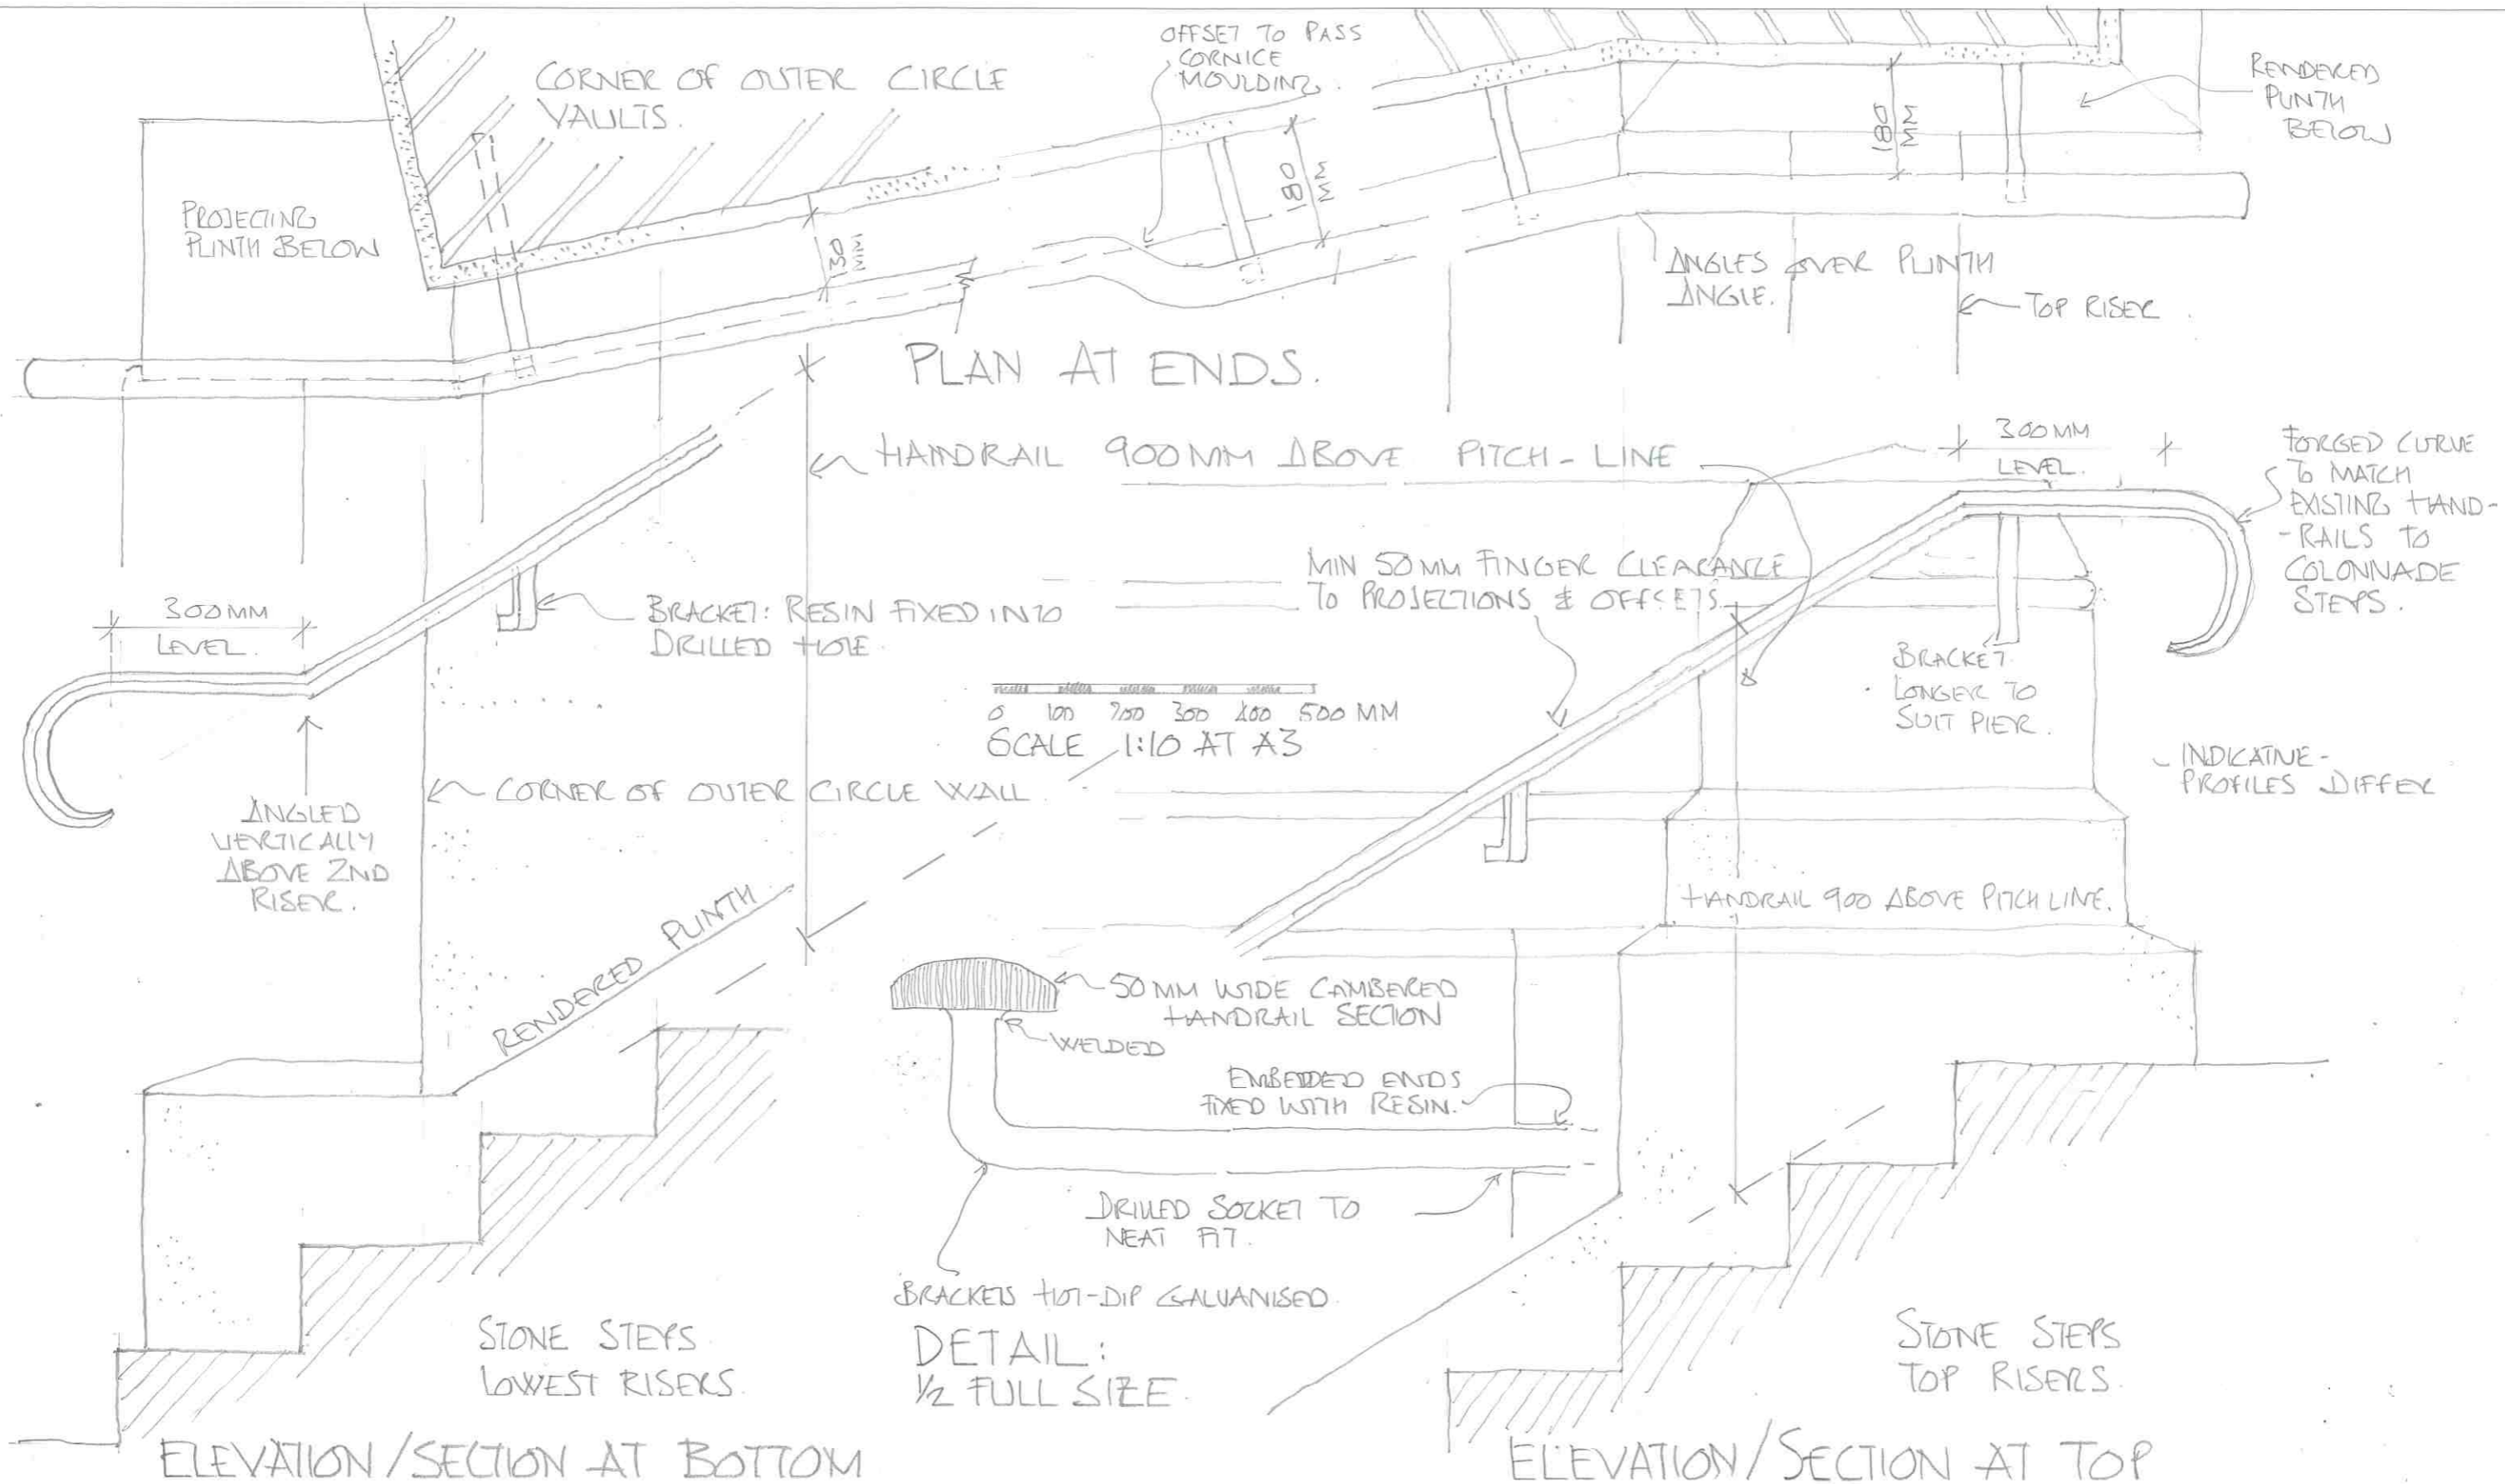 OFFSET TO PASS
CORNICE
MOULDING.
CORNER OF OUTER CIRCLE
VAULTS.
RENDERED
PLINTH
BELOW
PROJECTING
PLINTH BELOW
130
MM
180
MM
180
MM
ANGLES OVER PLINTH
ANGLE.
TOP RISER.
PLAN AT ENDS.
HANDRAIL 900MM ABOVE PITCH-LINE
300MM
LEVEL.
FORGED CURVE
TO MATCH
EXISTING HAND-
-RAILS TO
COLONNADE
STEPS.
MIN 50MM FINGER CLEARANCE
TO PROJECTIONS & OFFSETS.
300MM
LEVEL.
BRACKET: RESIN FIXED INTO
DRILLED HOLE.
BRACKET
LONGER TO
SUIT PIER.
0 100 200 300 400 500 MM
SCALE 1:10 AT A3
INDICATIVE-
PROFILES DIFFER
CORNER OF OUTER CIRCLE WALL.
ANGLED
VERTICALLY
ABOVE 2ND
RISER.
HANDRAIL 900 ABOVE PITCH LINE.
RENDERED PLINTH
50MM WIDE CAMBERED
HANDRAIL SECTION
WELDED
EMBEDDED ENDS
FIXED WITH RESIN.
DRILLED SOCKET TO
NEAT FIT.
BRACKETS HOT-DIP GALVANISED.
DETAIL:
1/2 FULL SIZE.
STONE STEPS
LOWEST RISERS.
STONE STEPS
TOP RISERS.
ELEVATION/SECTION AT BOTTOM
ELEVATION/SECTION AT TOP